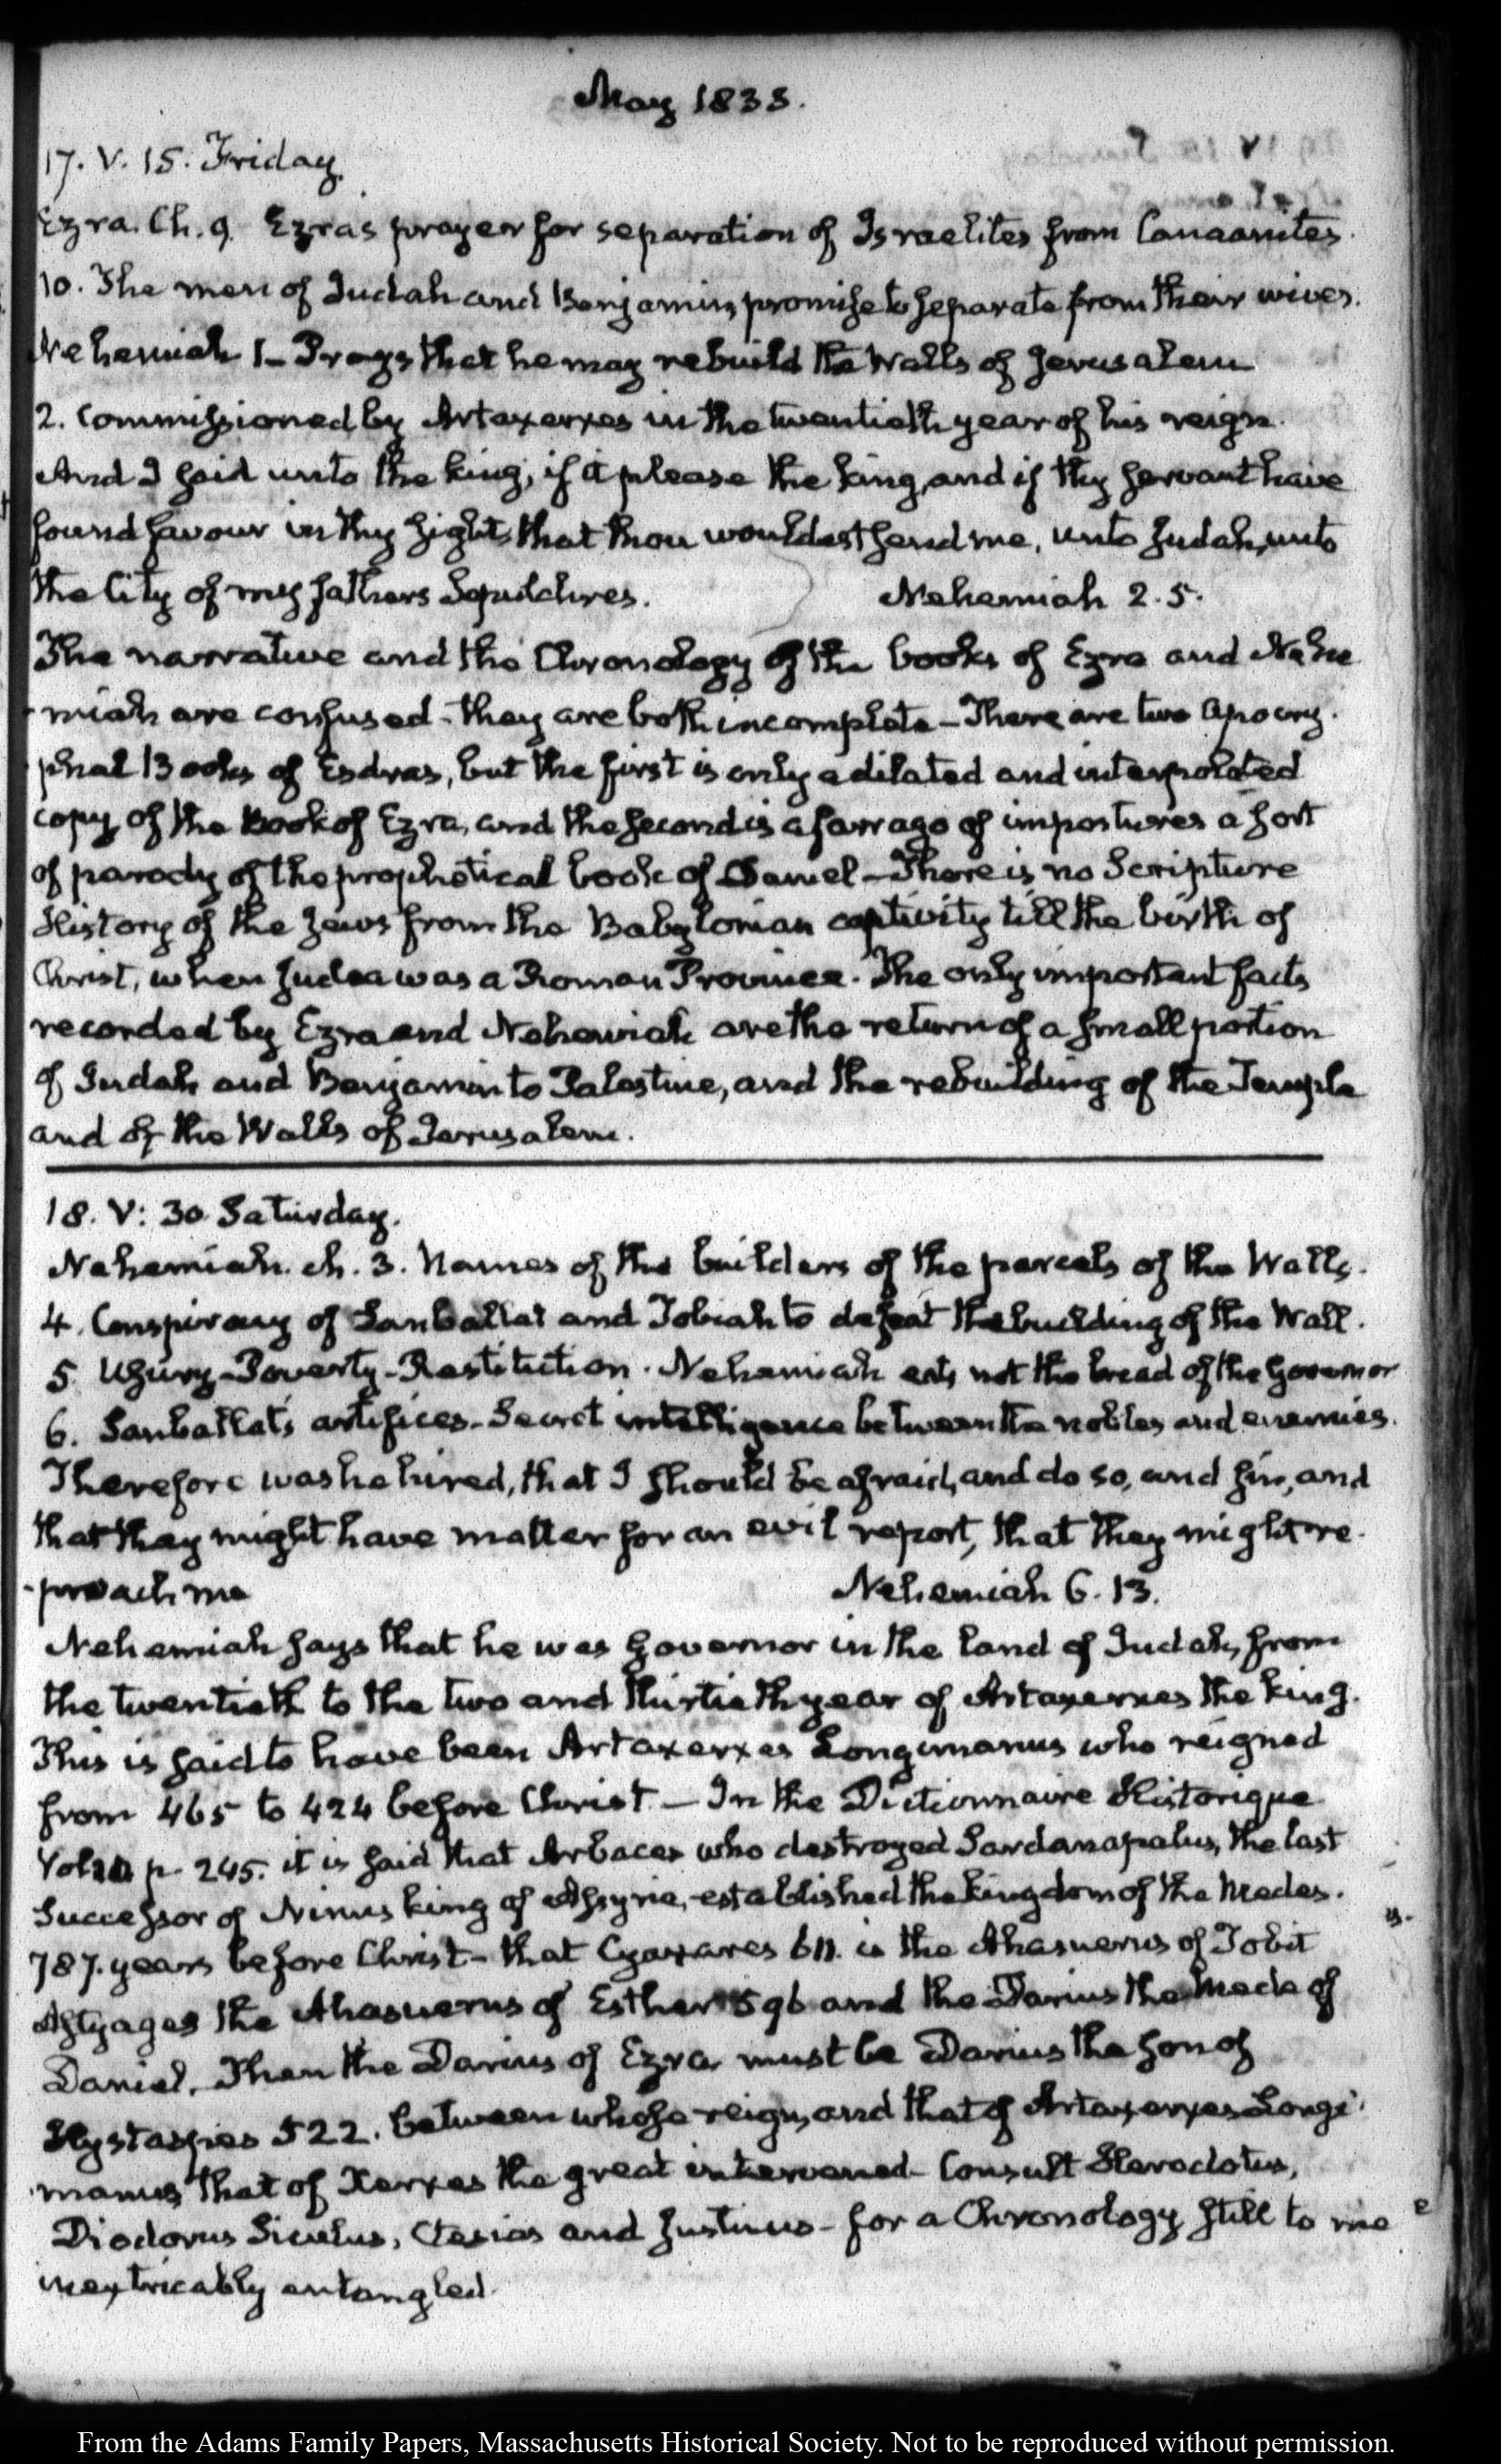 May 1833.
17. V. 15. Friday.
Ezra. Ch. 9. Ezra's prayer for separation of Israelites from Canaanites.
10. The men of Judah and Benjamin, promise to separate from their wives.
Nehemiah 1 – Prays that he may rebuild the Walls of Jerusalem
2. Commissioned by Artaxerxes in the twentieth year of his reign.
And I said unto the king, if it please the king, and if thy servant have
found favour in thy sight, that thou wouldest send me, unto Judah, unto
the City of my fathers Sepulchres. Nehemiah 2. 5.
The narrative and the Chronology of the books of Ezra and Nehe
-miah are confused – they are both incomplete – There are two Apocry-
phal Books of Esdras, but the first is only a dilated and interpolated
copy of the Book of Ezra, and the second is a farrago of impostures a sort
of parody of the prophetical book of Daniel – There is no Scripture
History of the Jews from the Babylonian captivity till the birth of
Christ, when Judea was a Roman Province. The only important facts
recorded by Ezra and Nehemiah are the return of a small portion
of Judah and Benjamin to Palestine, and the rebuilding of the Temple
and of the Walls of Jerusalem.
18. V: 30. Saturday.
Nehemiah. ch. 3. Names of the builders of the parcels of the Walls.
4. Conspiracy of Sanballat and Tobiah to defeat the building of the Wall.
5. Usury – Poverty – Restitution. Nehemiah eats not the bread of the Governor
6. Sanballat's artifices – Secret intelligence between the nobles and enemies.
Therefore was he hired, that I should be afraid, and do so, and sin, and
that they might have matter for an evil report, that they might re-
-proach me Nehemiah 6. 13.
Nehemiah says that he was Governor in the land of Judah, from
the twentieth to the two and thirtieth year of Artaxerxes the king.
This is said to have been Artaxerxes Longimanus who reigned
from 465 to 424 before Christ. – In the Dictionnaire Historique
Vol. p. 245. it is said that Arbaces who destroyed Sardanapalus, the last
Successor of Ninus king of Assyria, established the kingdom of the Medes.
787. years before Christ – that Cyaxares 611. is the Ahasuerus of Tobit
Astyages the Ahasuerus of Esther 596 and the Darius the Mede of
Daniel. Then the Darius of Ezra must be Darius the Son of
Hystaspes 522. between whose reign, and that of Artaxerxes Longi-
-manus that of Xerxes the great intervened – Consult Herodotus,
Diodorus Siculus, Ctesias and Justinus – for a Chronology still to me
inextricably entangled.
From the Adams Family Papers, Massachusetts Historical Society. Not to be reproduced without permission.